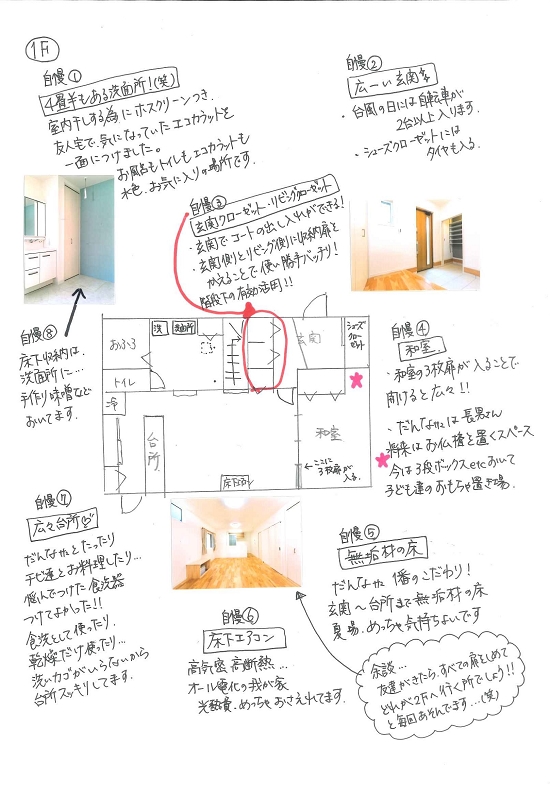 1F
自慢①
4畳半もある洗面所!(笑)
室内干しする為にホスクリーンつき。
友人宅で、気になっていたエコカラットを
一面につけました。
お風呂もトイレもエコカラットも
水色。お気に入りの場所です。
自慢②
広ーい玄関
・台風の日には自転車が
2台以上入ります。
・シューズクローゼットには
タイヤも入る。
自慢③
玄関クローゼット・リビングクローゼット
・玄関でコートの出し入れができる!
・玄関側とリビング側に収納扉を
かえることで使い勝手バッチリ!
階段下の有効活用!!
自慢⑧
床下収納は、
洗面所に…
手作り味噌など
おいてます。
おふろ
洗
洗面所
玄関
シューズクローゼット
トイレ
冷
台所
和室
←ここに3枚扉が入る。
床下エアコン
自慢④
和室
・和室の3枚扉が入ることで
開けると広々!!
・だんなサマは長男さん
将来はお仏壇を置くスペース
今は3段ボックスetcおいて
子ども達のおもちゃ置き場。
自慢⑦
広々台所
だんなサマとたったり
チビ達とお料理したり…
悩んでつけた食洗器
つけてよかった!!
食洗として使ったり、
乾燥だけ使ったり…
洗いカゴがいらないから
台所スッキリしてます。
自慢⑤
無垢材の床
だんなサマ1番のこだわり!
玄関〜台所まで無垢材の床
夏場、めっちゃ気持ちよいです
自慢⑥
床下エアコン
高気密高断熱…
オール電化の我が家
光熱費、めっちゃおさえれてます。
余談…
友達がきたら、すべての扉をしめて
どれが2Fへ行く所でしょう!!
と毎回あそんでます…(笑)